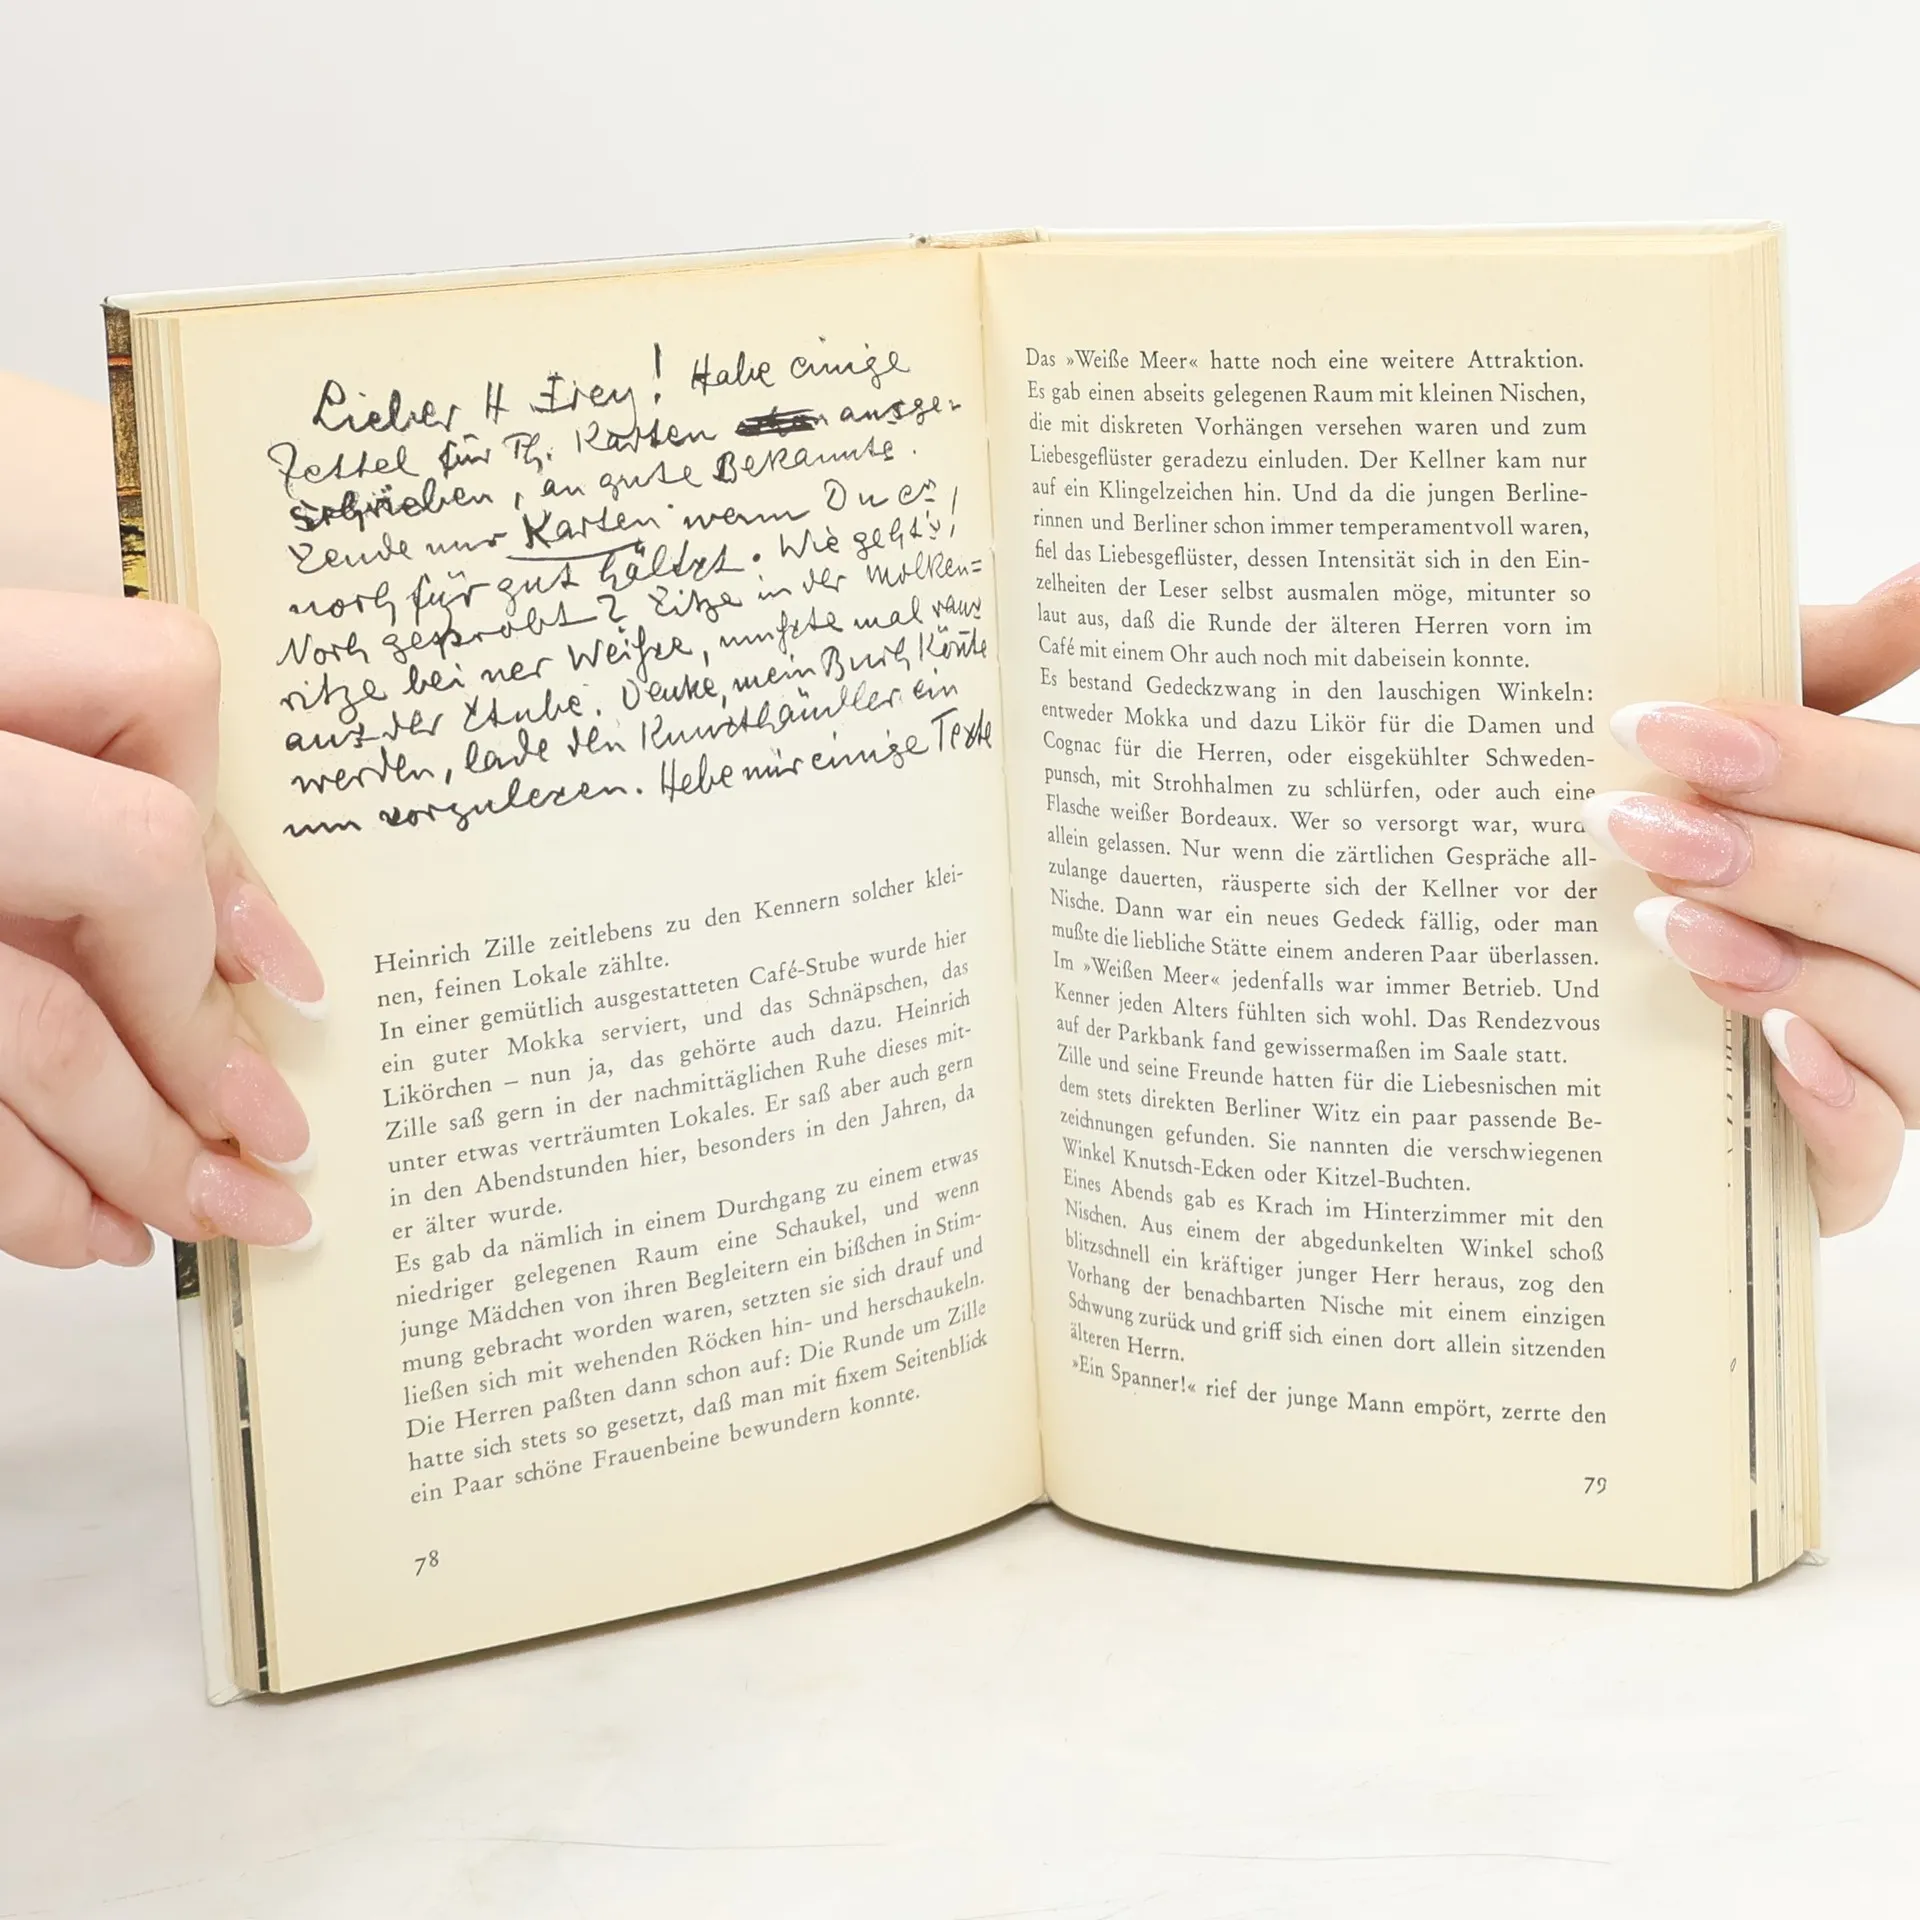 Lieber H Frey! Habe einige
Zettel für Th. Karten ausge-
schrieben, an gute Bekannte.
Sende nur Karten wenn Du es
noch für gut hältst. Wie geht's!
Noch geprobt? Sitze in der Molken=
ritze bei ner Weißse, mußste mal raus
aus der Stube. Denke, mein Buch könnte
werden, lade den Kunsthändler ein
um vorzulesen. Hebe mir einige Texte
Heinrich Zille zeitlebens zu den Kennern solcher klei-
nen, feinen Lokale zählte.
In einer gemütlich ausgestatteten Café-Stube wurde hier
ein guter Mokka serviert, und das Schnäpschen, das
Likörchen – nun ja, das gehörte auch dazu. Heinrich
Zille saß gern in der nachmittäglichen Ruhe dieses mit-
unter etwas verträumten Lokales. Er saß aber auch gern
in den Abendstunden hier, besonders in den Jahren, da
er älter wurde.
Es gab da nämlich in einem Durchgang zu einem etwas
niedriger gelegenen Raum eine Schaukel, und wenn
junge Mädchen von ihren Begleitern ein bißchen in Stim-
mung gebracht worden waren, setzten sie sich drauf und
ließen sich mit wehenden Röcken hin- und herschaukeln.
Die Herren paßten dann schon auf: Die Runde um Zille
hatte sich stets so gesetzt, daß man mit fixem Seitenblick
ein Paar schöne Frauenbeine bewundern konnte.
78
Das »Weiße Meer« hatte noch eine weitere Attraktion.
Es gab einen abseits gelegenen Raum mit kleinen Nischen,
die mit diskreten Vorhängen versehen waren und zum
Liebesgeflüster geradezu einluden. Der Kellner kam nur
auf ein Klingelzeichen hin. Und da die jungen Berline-
rinnen und Berliner schon immer temperamentvoll waren,
fiel das Liebesgeflüster, dessen Intensität sich in den Ein-
zelheiten der Leser selbst ausmalen möge, mitunter so
laut aus, daß die Runde der älteren Herren vorn im
Café mit einem Ohr auch noch mit dabeisein konnte.
Es bestand Gedeckzwang in den lauschigen Winkeln:
entweder Mokka und dazu Likör für die Damen und
Cognac für die Herren, oder eisgekühlter Schweden-
punsch, mit Strohhalmen zu schlürfen, oder auch eine
Flasche weißer Bordeaux. Wer so versorgt war, wurd
allein gelassen. Nur wenn die zärtlichen Gespräche all-
zulange dauerten, räusperte sich der Kellner vor der
Nische. Dann war ein neues Gedeck fällig, oder man
mußte die liebliche Stätte einem anderen Paar überlassen.
Im »Weißen Meer« jedenfalls war immer Betrieb. Und
Kenner jeden Alters fühlten sich wohl. Das Rendezvous
auf der Parkbank fand gewissermaßen im Saale statt.
Zille und seine Freunde hatten für die Liebesnischen mit
dem stets direkten Berliner Witz ein paar passende Be-
zeichnungen gefunden. Sie nannten die verschwiegenen
Winkel Knutsch-Ecken oder Kitzel-Buchten.
Eines Abends gab es Krach im Hinterzimmer mit den
Nischen. Aus einem der abgedunkelten Winkel schoß
blitzschnell ein kräftiger junger Herr heraus, zog den
Vorhang der benachbarten Nische mit einem einzigen
Schwung zurück und griff sich einen dort allein sitzenden
älteren Herrn.
»Ein Spanner!« rief der junge Mann empört, zerrte den
79